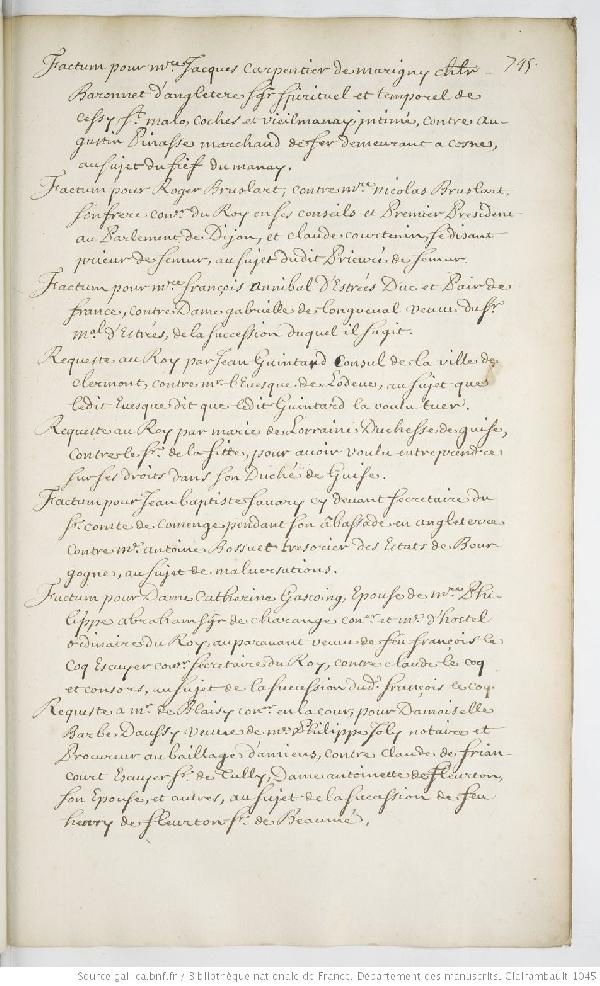 745.
Factum pour mre. Jacques Carpentier de marigny chlr
Baronnet d'angletere sgr spirituel et temporel de
Cessy st. malo, Coches et Vieilmanay, intimé, contre Au-
gustin Pinasse marchand de fer demeurant a Cosne,
au sujet du fief du manay.
Factum pour Roger Bruslart, contre mre nicolas Bruslart,
son frere conr. du Roy en ses conseils et Premier President
au Parlement de Dijon, et claude courtenin, se disant
prieur de semur, au sujet dudit Prieuré de semur.
Factum pour mre françois annibal D'Estrées Duc et Pair de
france, contre Dame gabrielle de longueual veuue du sr.
mal. d'Estrées, de la succession duquel il s'agit.
Requeste au Roy par Jean Guintard Consul de la ville de
clermont, contre mr. l'Euesque de Lodeue, au sujet que
ledit Euesque dit que ledit Guintard la voulu tuer.
Requeste au Roy par marie de Lorraine Duchesse de guise,
contre le sr. de la fitte, pour auoir voulu entreprendre
sur ses droits dans son Duché de Guise.
Factum pour Jean baptiste sauary cy deuant secretaire du
sr. comte de Comenge pendant son abassade en angleterre
contre mr. antoine Bossuet tresorier des Estats de Bour-
gogne, au sujet de maluersations.
Factum pour Dame Catherine Gascoing, Epouse de mre Phi-
lippe abraham sgr de charange conr. et me. d'hostel
ordinaire du Roy, auparauant veuue de feu françois le
Coq Escuyer conr. secretaire du Roy, contre claude le coq
et consors, au sujet de la succession dud. françois le coq.
Requeste a mr. de Blaisy conr. en la cour, pour Damoiselle
Barbe Daussy veuue de me Philippe Joly notaire et
Procureur au bailliage d'amiens, contre Claude de frian-
court Escuyer sr. de Tully, Dame antoinette de fleurton,
son Epouse, et autres, au sujet de la succession de feu
henry de fleurton sr. de Beaumé.
Source gallica.bnf.fr / Bibliothèque nationale de France. Département des manuscrits. Clairambault 1045